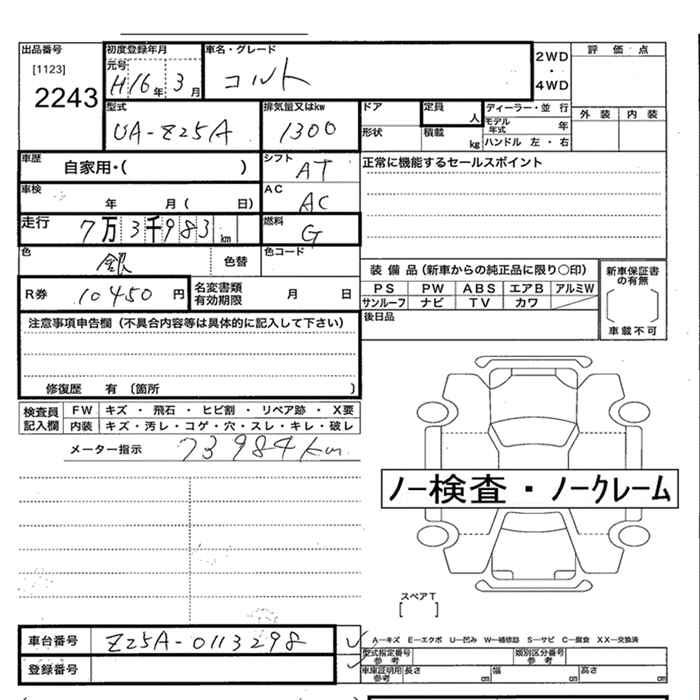 出品番号
[1123]
2243
初度登録年月
元号
H16年 3月
車名・グレード
コルト
2WD
・
4WD
評 価 点
外 装 内 装
型式
UA-Z25A
排気量又はkw
1300
ドア
形状
定員
人
積載
kg
ディーラー・並 行
モデル年式 年
ハンドル 左・右
車歴
自家用・( )
シフト
AT
正常に機能するセールスポイント
車検
年 月( 日)
AC
AC
走行
7万3千983km
燃料
G
色
銀
色替
色コード
R券 10450 円
名変書類
有効期限
月 日
装 備 品(新車からの純正品に限り○印)
PS PW ABS エアB アルミW
サンルーフ ナビ TV カワ
後日品
新車保証書
の有無
車載不可
注意事項申告欄(不具合内容等は具体的に記入して下さい)
修復歴 有〔箇所 〕
検査員
記入欄
FW キズ ・ 飛石 ・ ヒビ割 ・ リペア跡 ・ X要
内装 キズ・汚レ・コゲ・穴・スレ・キレ・破レ
メーター指示 73984km
ノー検査・ノークレーム
スペアT
[ ]
車台番号 Z25A-0113298
登録番号
A―キズ E―エクボ U―凹み W―補修跡 S―サビ C―腐食 XX―交換済
型式指定番号
参考
類別区分番号
参考
車庫証明用
参考
長さ cm 幅 cm 高さ cm